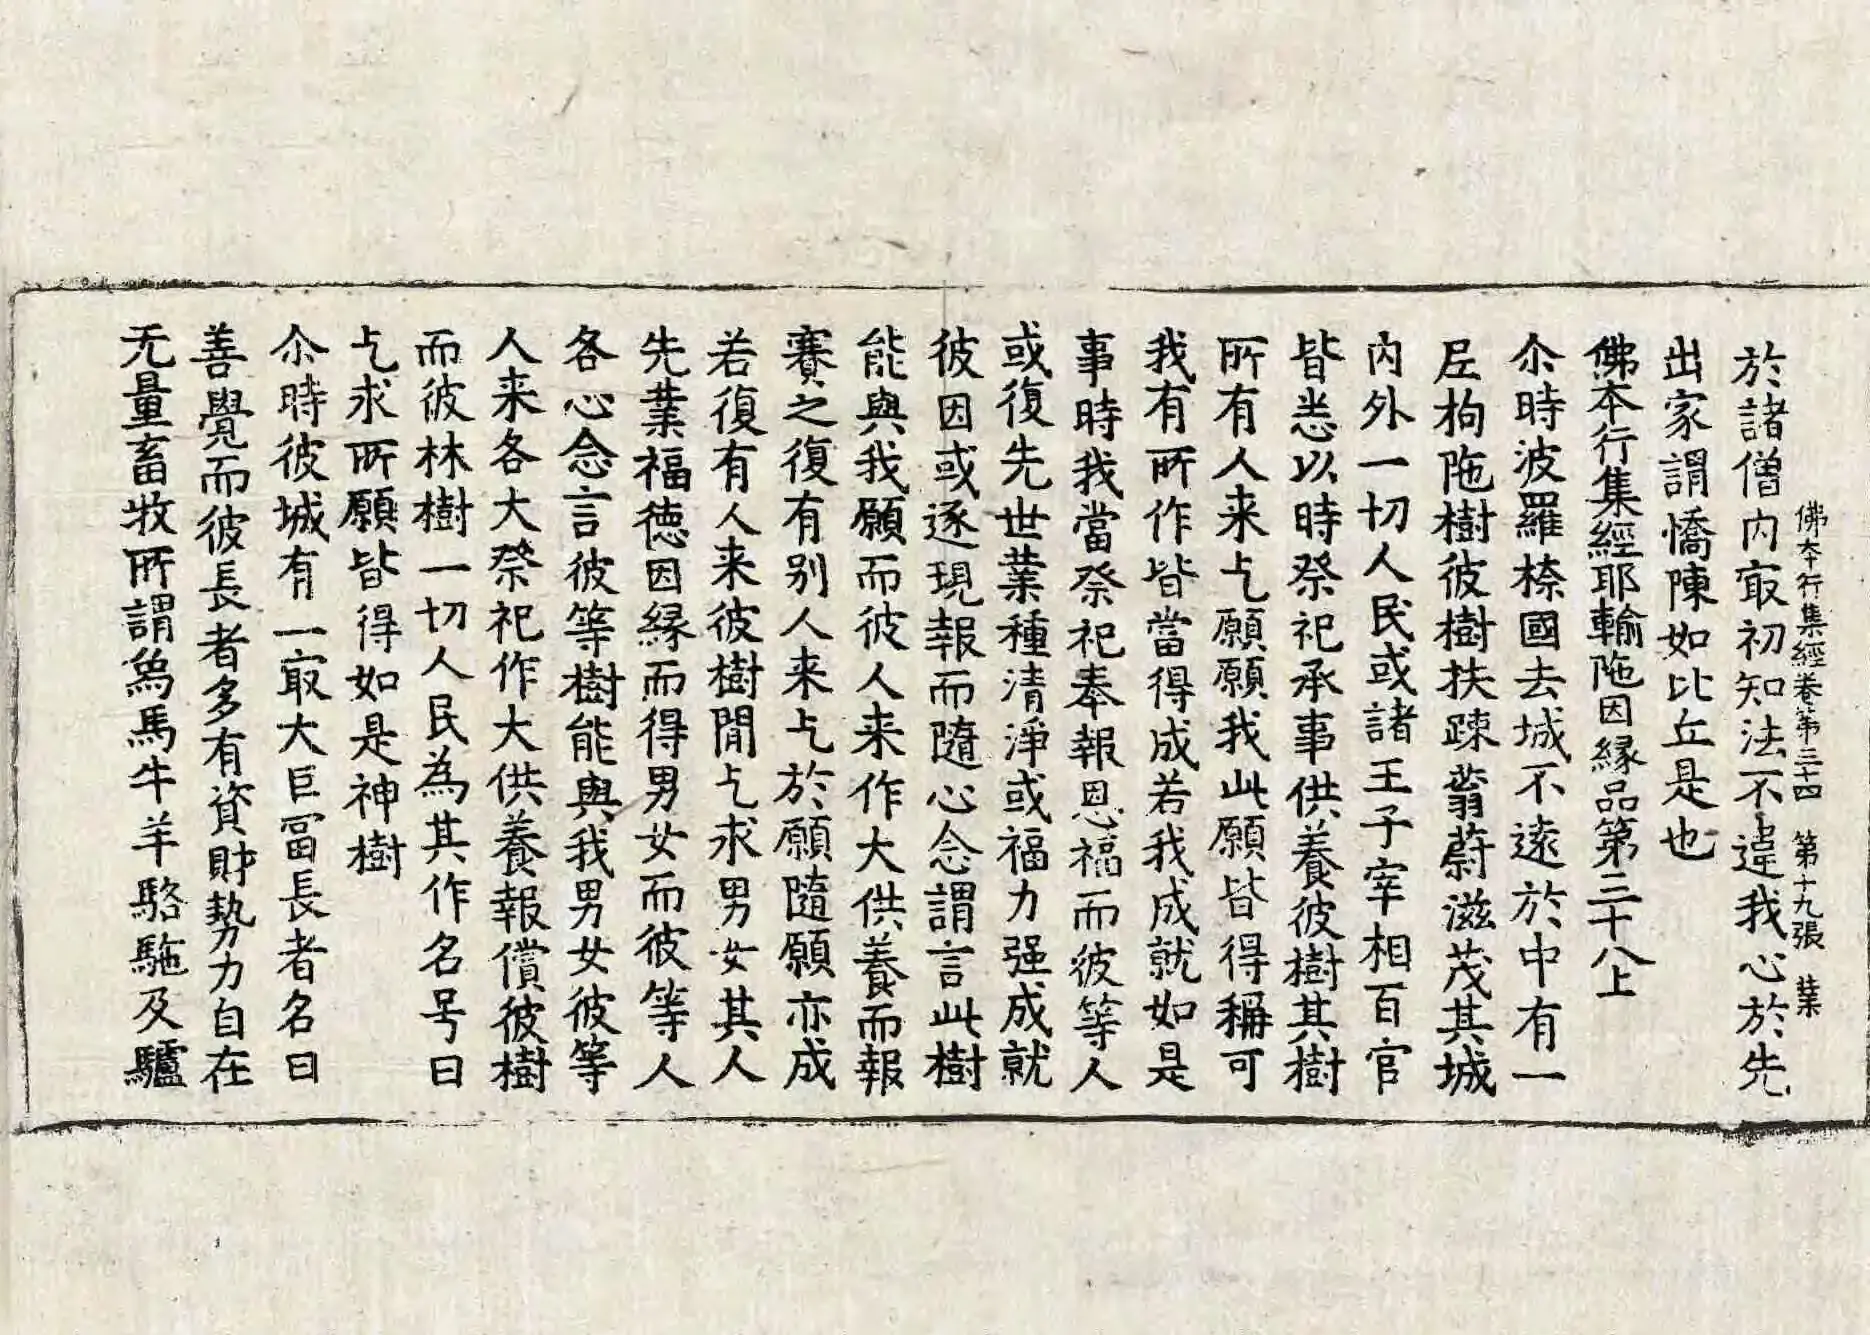 佛本行集經卷第三十四　第十九張　業
於諸僧内㝡初知法不違我心於先
出家謂憍陳如比丘是也
佛本行集經耶輸陁因緣品第三十八上
尒時波羅㮈國去城不遠於中有一
尼拘陁樹彼樹扶踈蓊蔚滋茂其城
内外一切人民或諸王子宰相百官
皆悉以時祭祀承事供養彼樹其樹
所有人来乞願願我此願皆得稱可
我有所作皆當得成若我成就如是
事時我當祭祀奉報恩福而彼等人
或復先世業種清淨或福力强成就
彼因或逐現報而隨心念謂言此樹
能與我願而彼人来作大供養而報
賽之復有别人来乞於願隨願亦成
若復有人来彼樹間乞求男女其人
先業福德因緣而得男女而彼等人
各心念言彼等樹能與我男女彼等
人来各大祭祀作大供養報償彼樹
而彼林樹一切人民為其作名号曰
乞求所願皆得如是神樹
尒時彼城有一㝡大巨冨長者名曰
善覺而彼長者多有資財勢力自在
无量畜牧所謂爲馬牛羊駱駞及驢